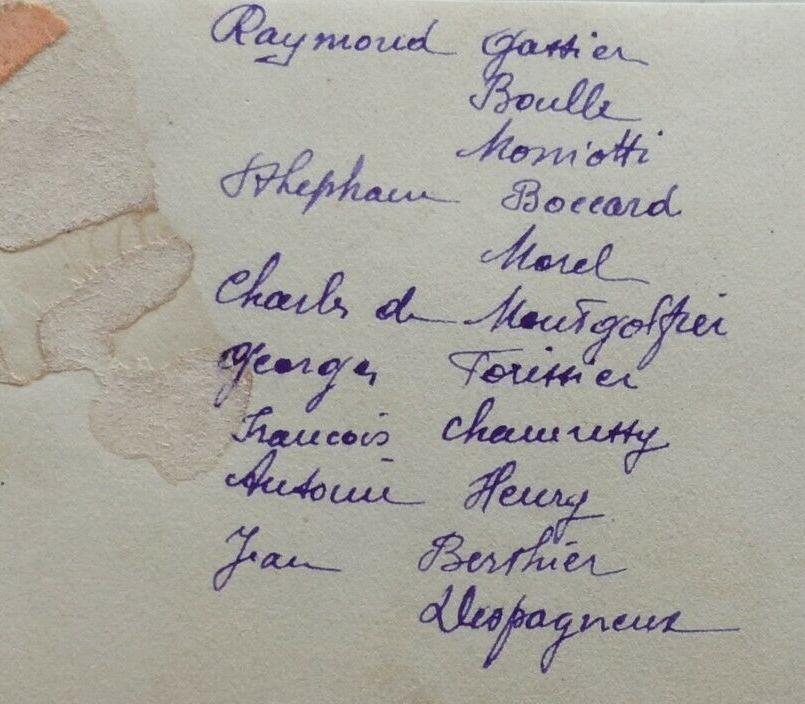 Raymond Gattier
Boulle
Moniotti
Sthephane Boccard
Morel
Charles de Montgolfier
Georges
Francois
Antonin Henry
Jean Berthier
Despagneux